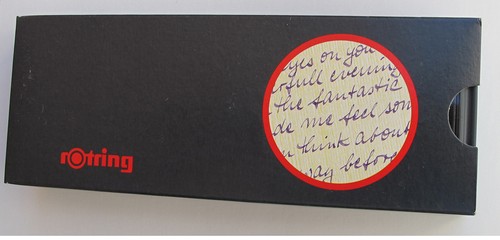 rotring
yes on you
full evening
the fantastic
de me feel som
think about
way before